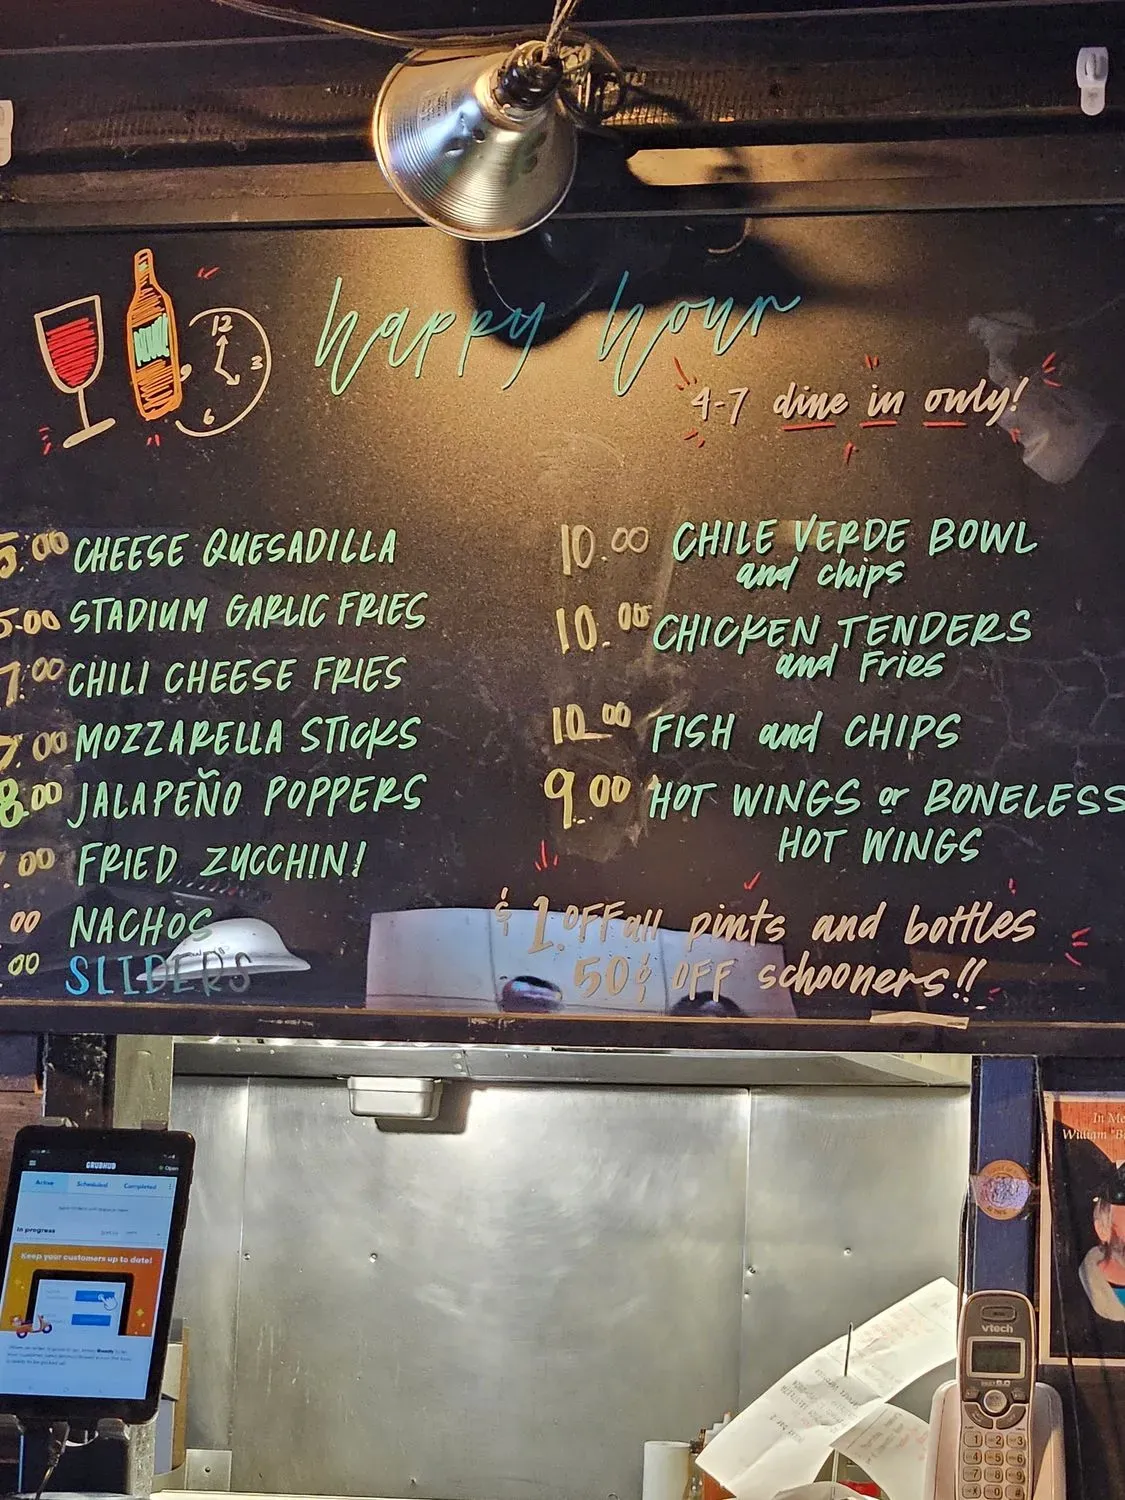 12
3
9
6
happy hour
4-7 dine in only!
5.00 CHEESE QUESADILLA
5.00 STADIUM GARLIC FRIES
7.00 CHILI CHEESE FRIES
7.00 MOZZARELLA STICKS
8.00 JALAPEÑO POPPERS
.00 FRIED ZUCCHINI
00 NACHOS
00 SLIDERS
10.00 CHILE VERDE BOWL
and chips
10.00 CHICKEN TENDERS
and Fries
10.00 FISH and CHIPS
9.00 HOT WINGS or BONELESS
HOT WINGS
$1. OFF all pints and bottles
50¢ OFF schooners!!
GRUBHUB
Open
Active Scheduled Completed
In progress
Keep your customers up to date!
In Me
William "B
vtech
1 2 3
4 5 6
7 8 9
0 #